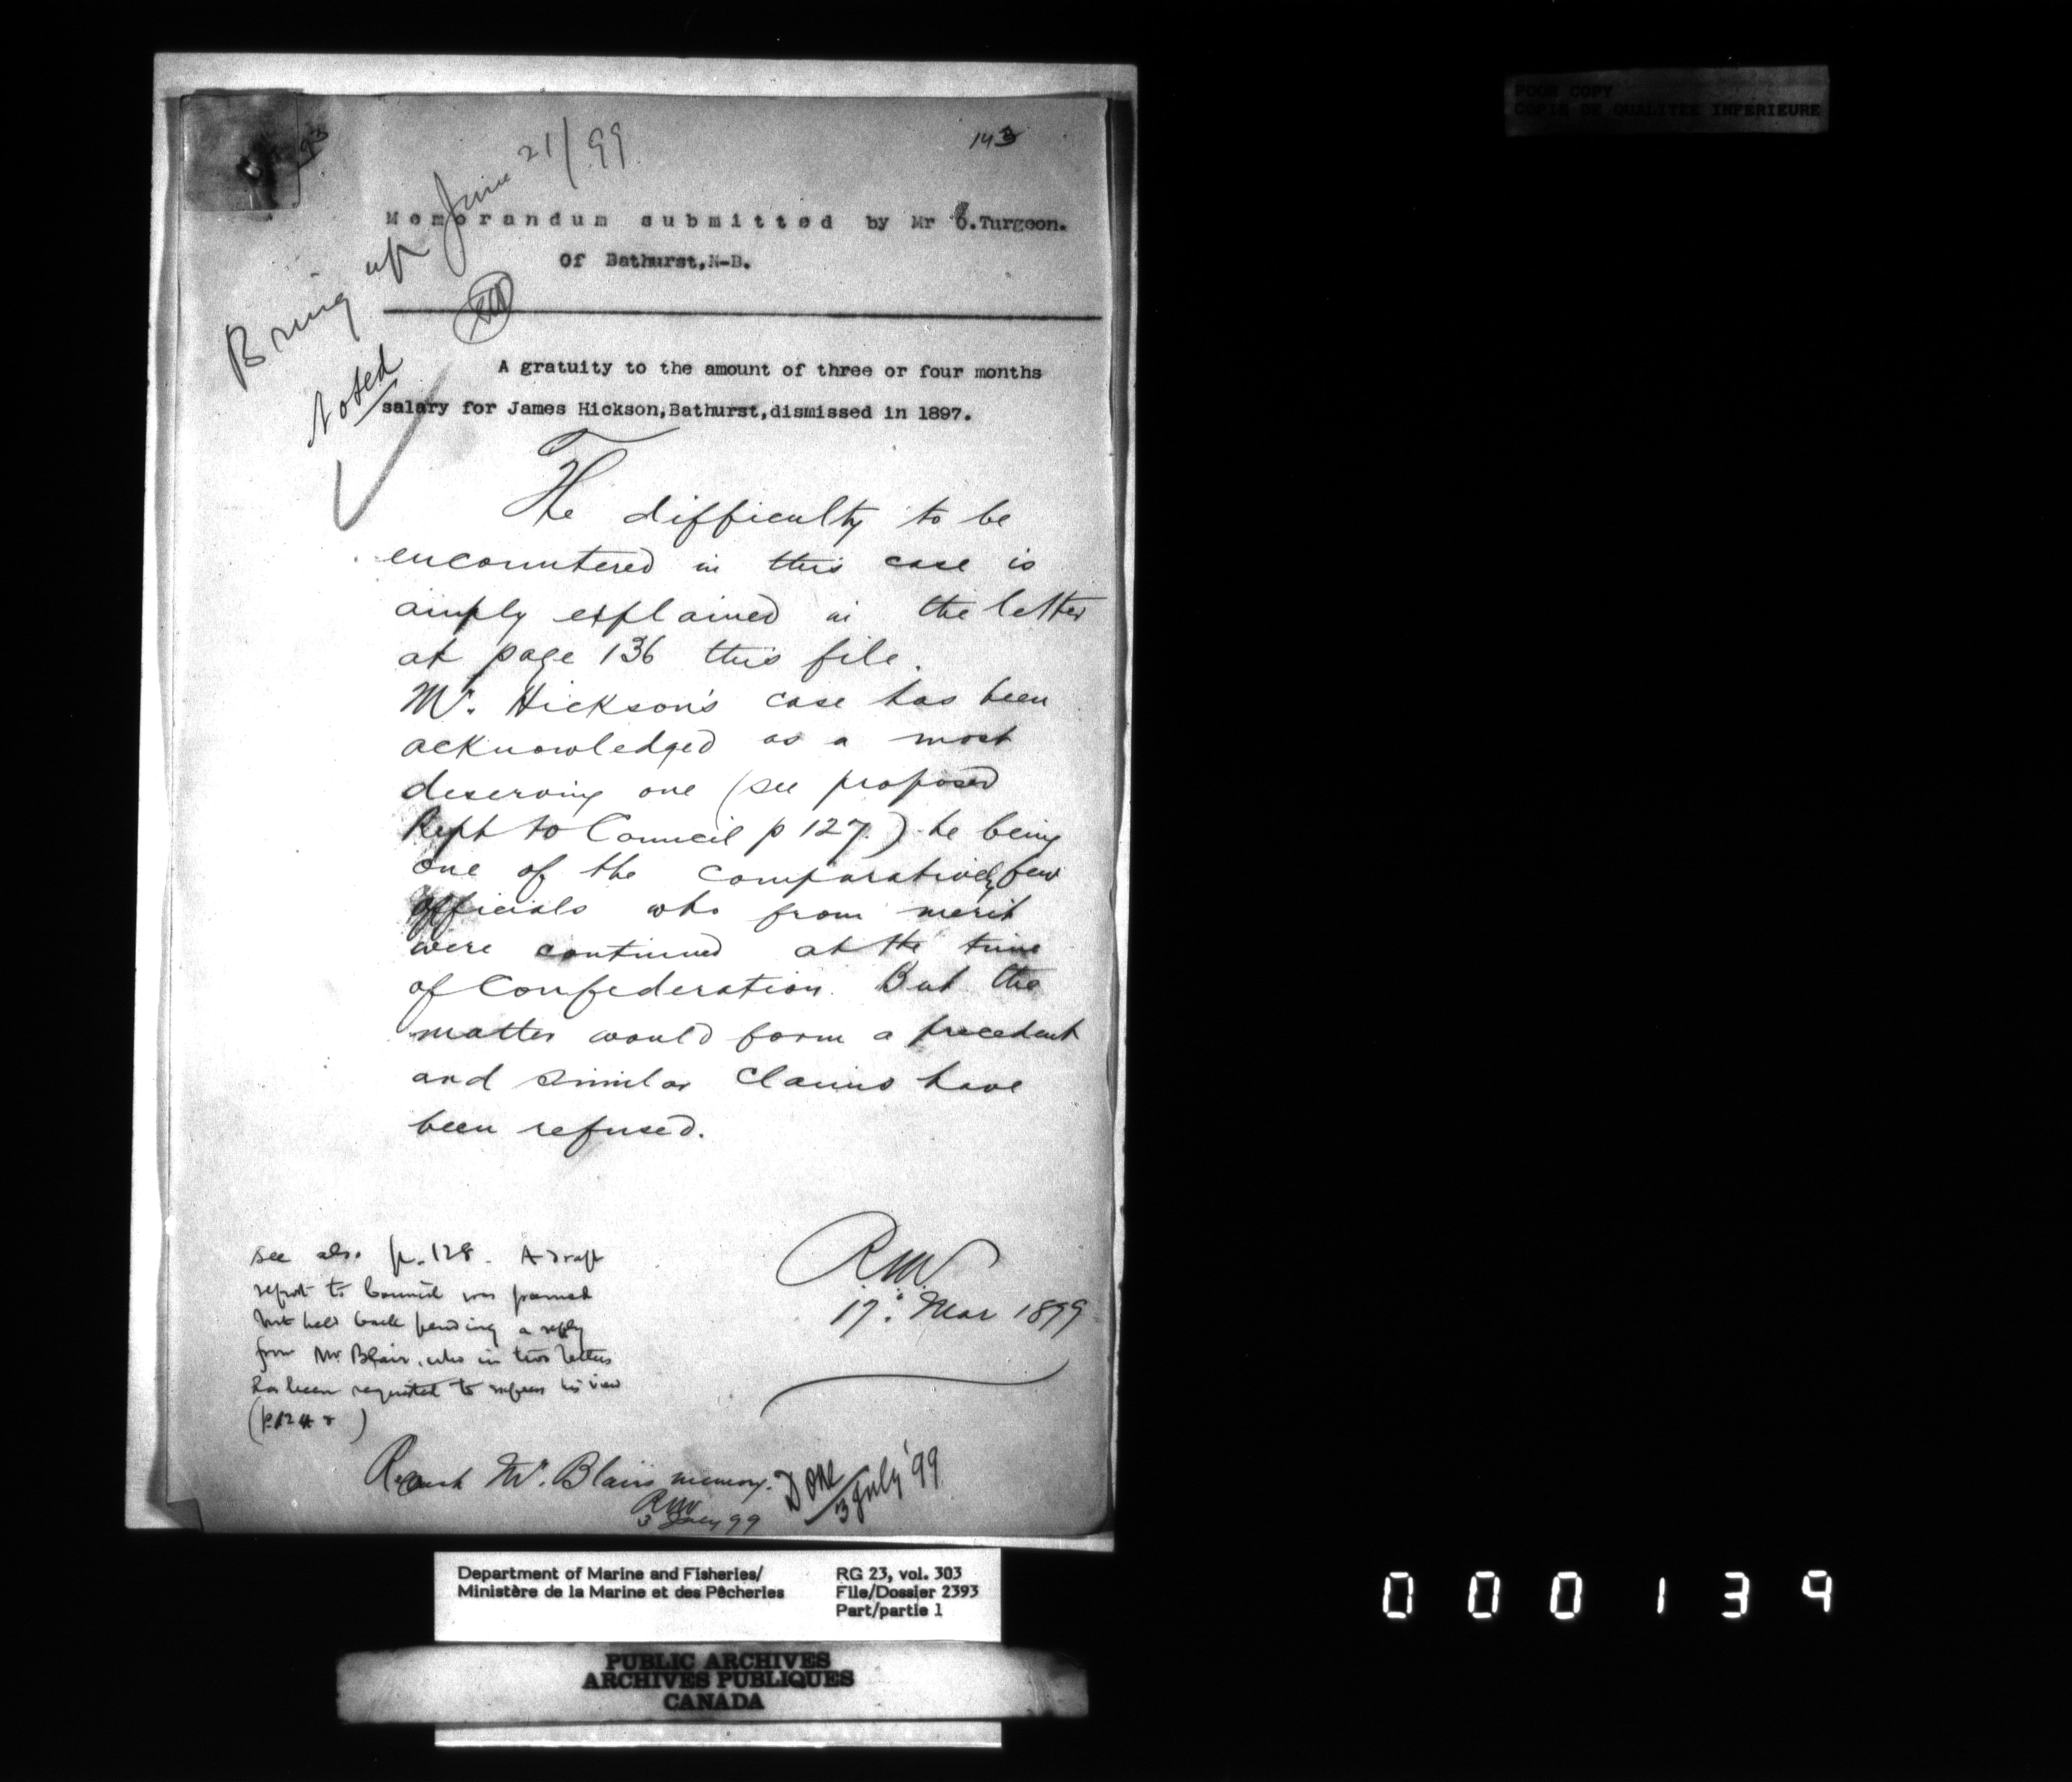 POOR COPY
COPIE DE QUALITEE INFERIEURE
143
Bring up June 21/99
Noted
Memorandum submitted by Mr O.Turgeon.
Of Bathurst,N-B.
A gratuity to the amount of three or four months
salary for James Hickson,Bathurst,dismissed in 1897.
The difficulty to be
encountered in this case is
amply explained in the letter
at page 136 this file.
Mr. Hickson's case has been
acknowledged as a most
deserving one (see proposed
Rept to Council p 127.) he being
one of the comparatively few
officials who from merit
were continued at the time
of Confederation. But the
matter would form a precedent
and similar claims have
been refused.
R.W.
17. Mar 1899
see also p. 128. A draft
report to Council was framed
but held back pending a reply
from Mr Blair, who in two letters
has been requested to express his view
Mr. Blairs memory.
RW
3 July 99
Done
3 July '99
Department of Marine and Fisheries/
Ministère de la Marine et des Pêcheries
RG 23, vol. 303
File/Dossier 2393
Part/partie 1
PUBLIC ARCHIVES
ARCHIVES PUBLIQUES
CANADA
000139